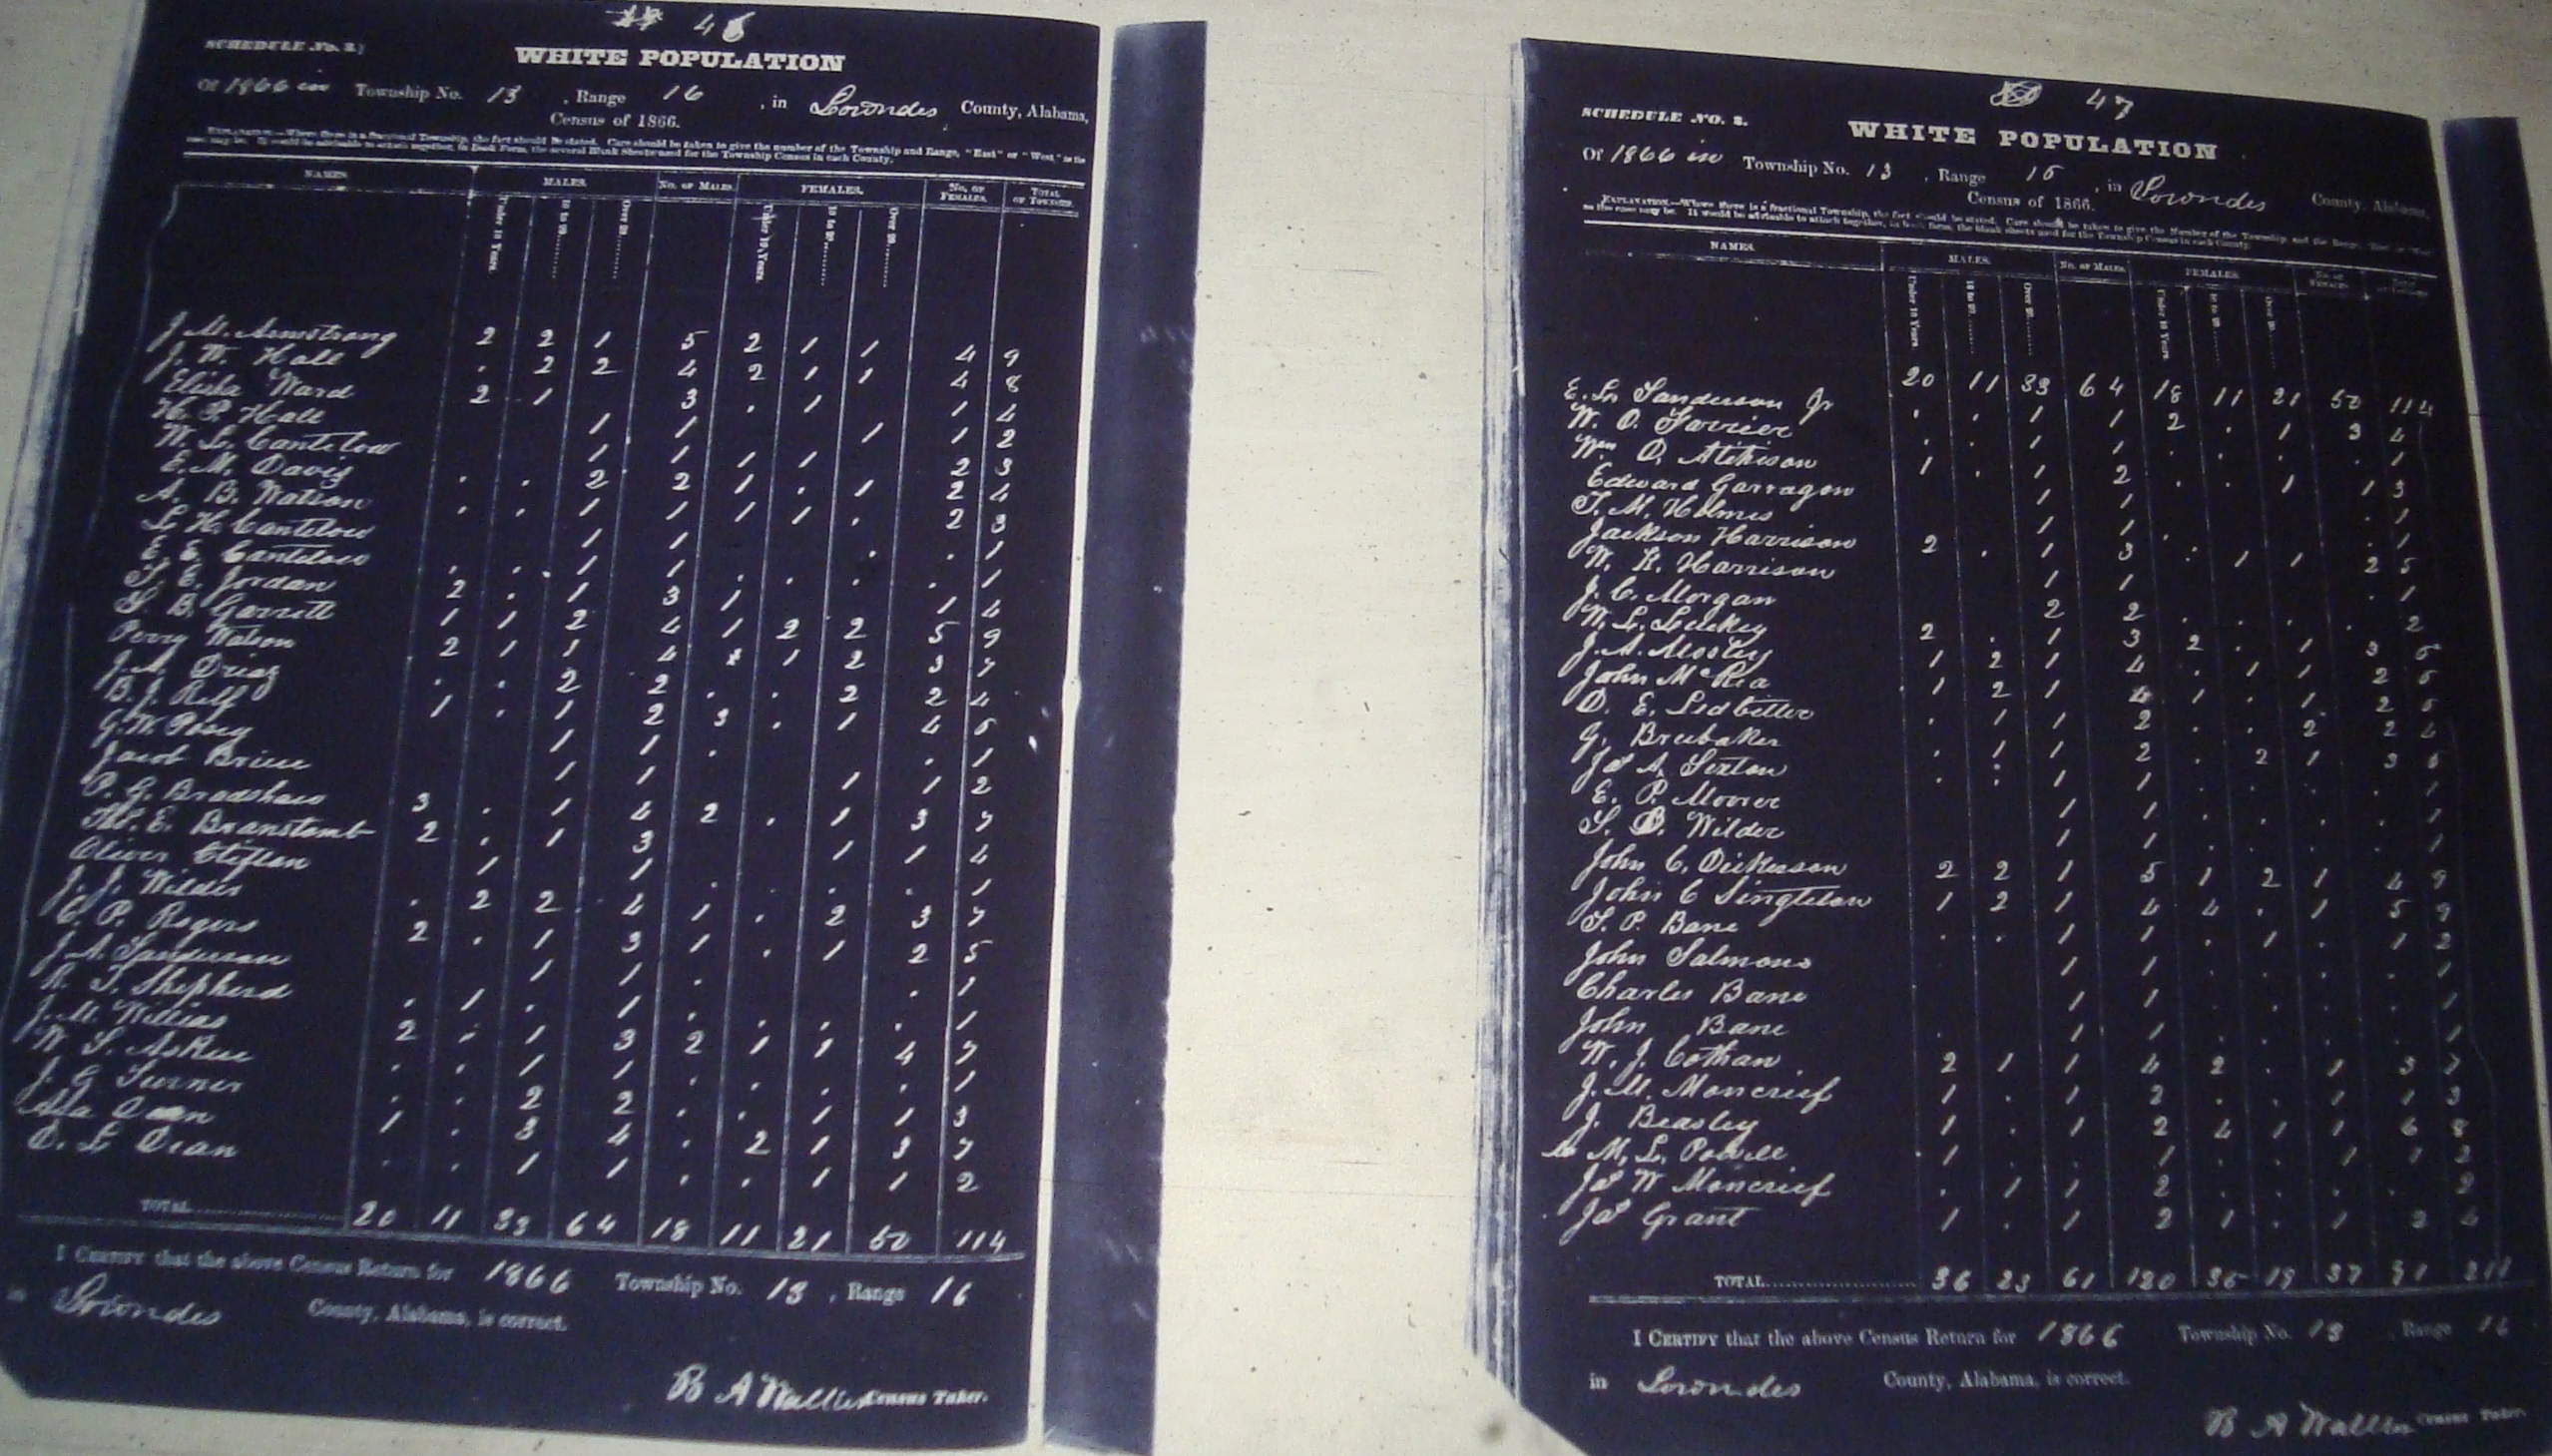 46
SCHEDULE No. 2.
WHITE POPULATION
Of 1866 in Township No. 13, Range 16, in Lowndes County, Alabama,
Census of 1866.
EXPLANATION.—Where there is a fractional Township, the fact should be stated. Care should be taken to give the number of the Township and Range, "East" or "West" as the
case may be. It would be advisable to attach together, in Book Form, the several Blank Sheets used for the Township Census in each County.
NAMES MALES. No. of Males. FEMALES. No. of Females. Total of Township.
Under 10 Years. 10 to 20 Over 20 Under 10 Years. 10 to 20 Over 20
J. M. Armstrong 2 2 1 5 2 1 1 4 9
J. W. Hall . 2 2 4 2 1 1 4 8
Elisha Ward 2 1 3 . 1 1 4
H. P. Hall 1 1 1 1 2
W. L. Cantelow 1 1 1 1 2 3
E. M. Davis . . 2 2 1 . 1 2 4
A. B. Watson . . 1 1 1 1 . 2 3
L. H. Cantelow 1 1 . . 1
E. E. Cantelow . . 1 1 . . . . 1
T. E. Jordan 2 . 1 3 1 1 4
S. B. Garrett 1 1 2 4 1 2 2 5 9
Perry Watson 2 1 1 4 1 2 3 7
J. A. . . 2 2 . . 2 2 4
B. J. Relf 1 . 1 2 3 . 1 4 6
G. W. Posey 1 1 . . 1
Jacob 1 1 1 1 2
P. G. Bradshaw 3 . 1 4 2 . 1 3 7
E. 2 . 1 3 1 1 4
Oliver Clifton 1 1 . . . 1
J. J. Wilder . 2 2 4 1 . 2 3 7
C. P. Rogers 2 . 1 3 1 . 1 2 5
J. A. Sanderson 1 1 . . 1
R. T. Shepherd . 1 1 . . . . 1
J. M. 2 . 1 3 2 1 1 4 7
W. S. Askue . . 1 1 . . . . 1
J. G. Turner . . 2 2 . . 1 1 3
Asa Dean 1 . 3 4 . 2 1 3 7
E. L. Dean . . 1 1 . . 1 1 2
TOTAL 20 11 33 64 18 11 21 50 114
I CERTIFY that the above Census Return for 1866 Township No. 13, Range 16
in Lowndes County, Alabama, is correct.
Census Taker.
47
SCHEDULE NO. 2.
WHITE POPULATION
Of 1866 in Township No. 13, Range 16, in Lowndes County, Alabama,
Census of 1866.
EXPLANATION.—Where there is a fractional Township, the fact should be stated. Care should be taken to give the Number of the Township and the Range,
as the case may be. It would be advisable to attach together, in book form, the blank sheets used for the Township Census in each County.
NAMES. MALES. No. of Males. FEMALES. No. of Females.
Under 10 Years. 10 to 20 Over 20 Under 10 Years. 10 to 20 Over 20
20 11 33 64 18 11 21 50 114
E. L. Sanderson Jr . . 1 1 2 . 1 3 4
W. O. Farrier . . 1 1 . . . . 1
Wm O. Atchison 1 . 1 2 . . 1 1 3
Edward Garragon 1 1 . 1
T. M. Holmes 1 1 . . 1
Jackson Harrison 2 . 1 3 . 1 1 2 5
W. R. Harrison 1 1 . 1
J. C. Morgan 2 2 . . . . 2
W. L. Luckey 2 . 1 3 2 . 1 3 6
J. A. Mosley 1 2 1 4 . 1 1 2 6
John McRea 1 2 1 4 1 . 1 2 6
D. E. Ledbetter . 1 1 2 . . 2 2 4
G. Brubaker . 1 1 2 . 2 1 3 5
Jas A. Sexton . . 1 1 . . . . 1
E. P. Moorer 1 1 . . . . 1
S. B. Wilder 1 1 . . . . 1
John C. Dickerson 2 2 1 5 1 2 1 4 9
John C Singleton 1 2 1 4 4 . 1 5 9
T. P. Bane . . 1 1 . 1 . 1 2
John Salmons 1 1 . . . . 1
Charles Bane 1 1 . . . . 1
John Bane . . 1 1 . . . . 1
W. J. Cothan 2 1 1 4 2 . 1 3 7
J. M. Moncrief 1 . 1 2 . . 1 1 3
J. Beasley 1 . 1 2 4 1 1 6 8
M. L. Powell 1 . . 1 . . 1 1 2
Jas W Moncrief . 1 1 2 . . . . 2
Jas Grant 1 . 1 2 1 . 1 2 4
TOTAL 36 23 61 120 35 19 37 91 211
I CERTIFY that the above Census Return for 1866 Township No. 13 Range 16
in Lowndes County, Alabama, is correct.
Census Taker.